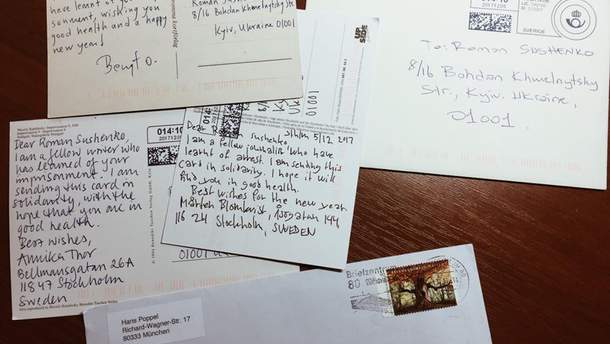 have learnt of your
wishing you
good health and a happy
new year!
Bengt O.
Roman
8/16 Bohdan Khmelnytsky Str
Kyiv, Ukraine 01001
SVERIGE
To: Roman SUSHENKO
8/16 Bohdan Khmelnytsky
Str., Kyiv, Ukraine,
01001
014:10
2017.12.05
Dear Roman Sushenko,
I am a fellow writer who
has learned of your
imprisonment. I am
sending this card in
solidarity, with the
hope that you are in
good health.
Best wishes,
Annika Thor
Bellmansgatan 26A
11847 Stockholm
Sweden
Sthlm 5/12 2017
Dear Sushenko,
I am a fellow journalist who have
learnt of arrest. I am sending this
card in solidarity. I hope it will
find you in good health.
Best wishes for the new year
Mårten Blomkvist,
116 24 Stockholm, SWEDEN
01001
01001
Hans Poppel
Richard-Wagner-Str. 17
80333 München
Briefzentrum
80